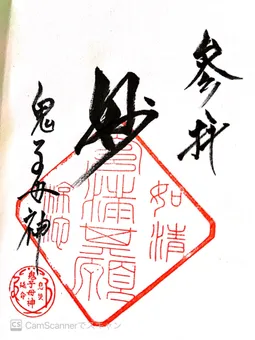 参拝
妙
鬼子母神
如清
充満其願
鬼子母神
CS CamScannerでスキャン